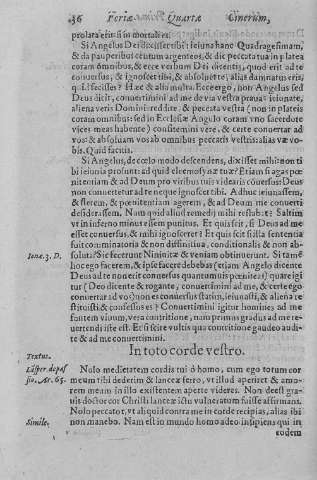 36 Feriæ Quartæ Cinerum,
prolata erit si in mortales.
Si Angelus Dei dixisset tibi: ieiuna hanc Quadragesimam,
& da pauperibus centum argenteos, & dic peccata tua in platea
coram omnibus, & ecce verbum Dei dicentis, quod erit ad te
conuersus, & ignoscet tibi, & absoluet te, alias damnatus eris:
quid fecisses? Hæc & alia multa. Ecce ego, non Angelus sed
Deus dicit, conuertimini ad me de via vestra praua: ieiunate,
aliena veris Dominis reddite, & peccata vestra (non in plateis
coram omnibus: sed in Ecclesiæ Angulo coram vno sacerdote
vices meas habente) confitemini vere, & certe conuertar ad
vos: & absoluam vos ab omnibus peccatis vestris: alias væ vo-
bis. Quid facitis.
Si Angelus, de cœlo modo descendens, dixisset mihi: non tibi
ieiunia prosunt: ad quid eleemosynæ tuæ? Etiam si agas pœ-
nitentiam & ad Deum pro viribus tuis videaris conuersus: Deus
non conuertetur ad te neque ignoscet tibi. Adhuc ieiunassem,
& flerem, & pœnitentiam agerem, & ad Deum me conuerti
desiderassem. Nam quid aliud remedij mihi restubat? Saltim
vt in inferno minus essem punitus. Et quis scit, si Deus ad me
esset conuersus, & mihi ignosceret? Et quis scit si illa sententia
fuit comminatoria & non diffinitiua, conditionalis & non abso-
Ione. 3. D. luta? Sic fecerunt Niniuitæ & veniam obtinuerunt. Si tamen
hoc ego facerem, & ipse facere debebas (etiam Angelo dicente
Deus ad te non erit conuersus quantumuis pœniteas) quare igi-
tur (Deo dicente & rogante, conuertimini ad me, & certe ego
conuertar ad vos) non es conuersus statim, ieiunasti, & aliena re
stituisti & confessus es? Conuertimini igitur homines ad me
fontem viuum, vera contritione, nam primus gradus ad me re-
uertendi ipse est. Et si scire vultis qua contritione gaudeo audi-
te & ad me conuertimini.
Textus. In toto corde vestro.
Nolo medietatem cordis tui ô homo, cum ego totum cor
meum tibi dederim & lancea ferro, vt illud aperiret & amo-
rem meum in illo existentem aperte videres. Non deest gra-
uis doctor cor Christi lanceæ ictu vulneratum fuisse affirmans.
Nolo peccator, vt aliquid contra me in corde recipias, alias ibi
Simile. non manebo. Nam est in mundo homo adeo insipiens qui in
eodem